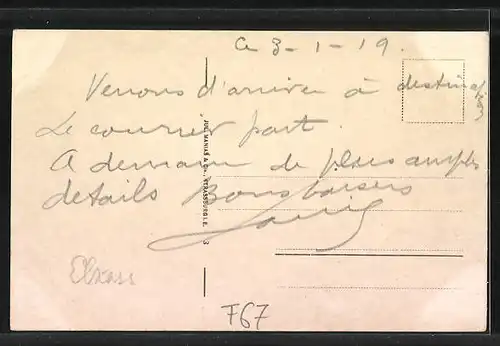 Ce 3-1-19.
Venons d'arriver à destination
Le courrier part.
A demain de plus amples
details Bons baisers
JUL. MANIAS & Cie., STRASSBURG I. E.
Elsass
F67